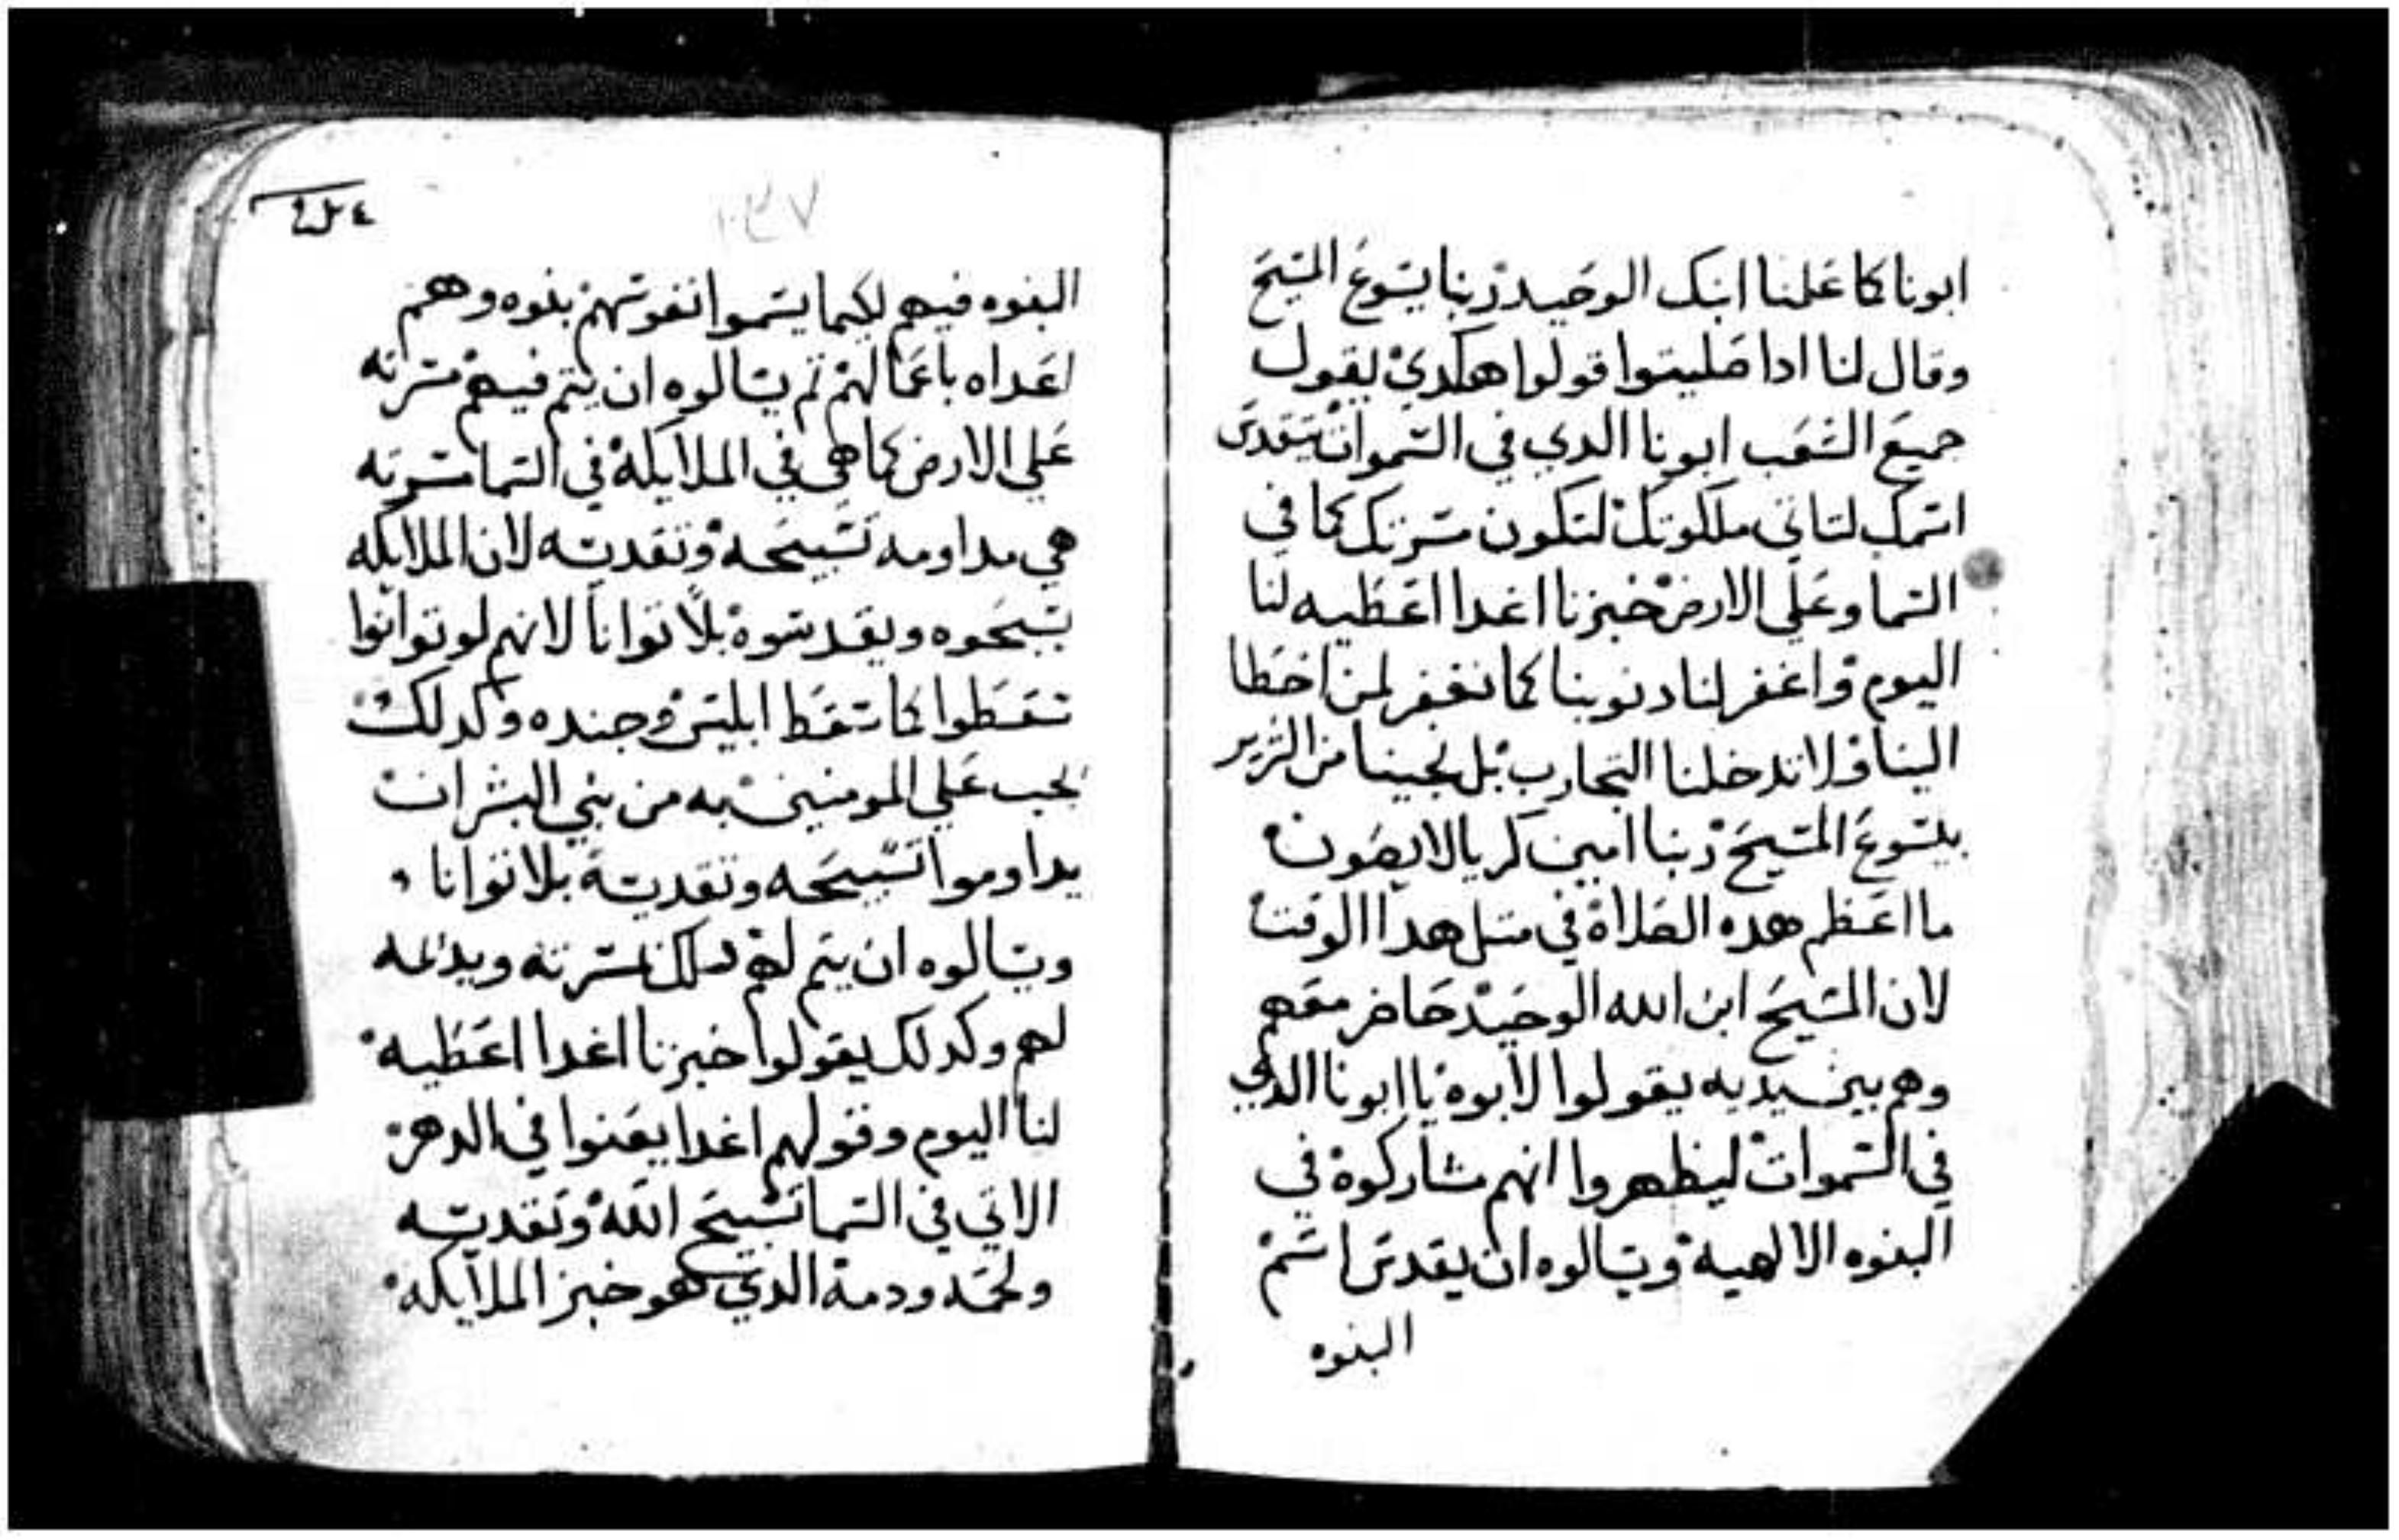 ابونا كما علمنا ابنك الوحيد ربنا يسوع المسيح
وقال لنا ادا صليتوا قولوا هكدي ليقول
جميع الشعب ابونا الدي في السموات يتقدس
اسمك لتاتي ملكوتك لتكون مسرتك كما في
السما وعلي الارض خبزنا اغدا اعطيه لنا
اليوم واغفر لنا دنوبنا كما نغفر لمن اخطا
الينا ولا تدخلنا التجارب بل نجينا من الشرير
بيسوع المسيح ربنا امين كريالايصون
ما اعظم هده الصلاة في متل هدا الوقت
لان المسيح ابن الله الوحيد حاضر معهم
وهم بين يديه يقولوا لابوه يا ابونا الدي
في السموات ليظهروا انهم مشاركوه في
البنوه الالهية ويسالوه ان يقدس اسم
البنوه
البنوه فيهم لكيما يسموا نفوسهم بنوه وهم
اعداه باعمالهم تم يسالوه ان يتم فيهم مسرته
علي الارض كما هي في الملايكة في السما مسرته
هي مداومه تسبيحه وتقديسه لان الملايكه
يسبحوه ويقدسوه بلا توانا لانهم لو توانوا
سقطوا كما سقط ابليس وجنده وكدلك
يجب علي المومنين به من بني البشر ان
يداوموا تسبيحه وتقديسه بلا توانا
ويسالوه ان يتم لهم دلك مسرته ويديمه
لهم وكدلك يقولوا خبزنا اغدا اعطيه
لنا اليوم وقولهم اغدا يعنوا في الدهر
الاتي في السما تسبيح الله وتقديسه
ولحمه ودمه الدي هو خبز الملايكه